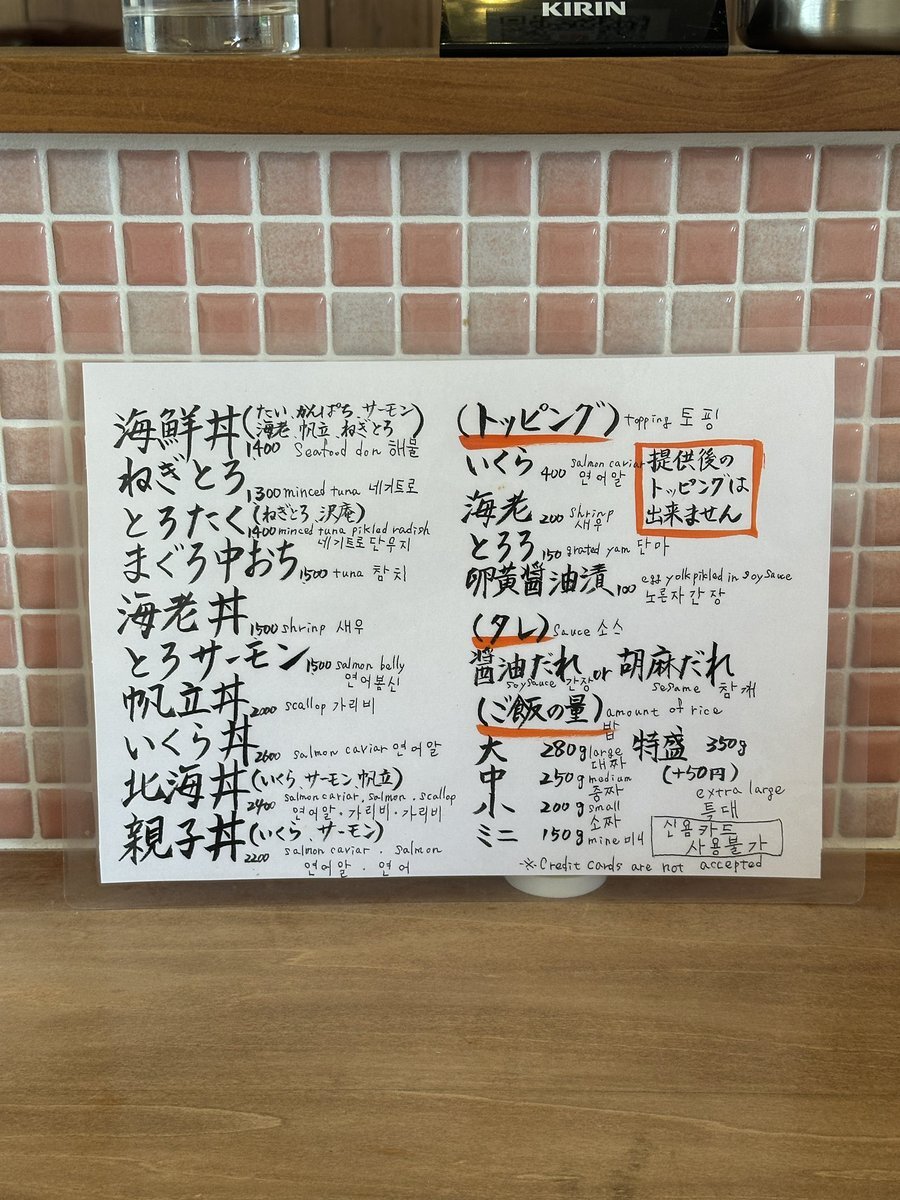 KIRIN
海鮮丼(たい、かんぱち、サーモン
海老、帆立、ねぎとろ)
1400 Seafood don 해물
ねぎとろ
1300 minced tuna 네기트로
とろたく(ねぎとろ、沢庵)
1400 minced tuna pikled radish
네기트로단무지
まぐろ中おち
1500 tuna 참치
海老丼
1500 shrimp 새우
とろサーモン
1500 salmon belly
帆立丼
2000 scallop 가리비
いくら丼
2600 salmon caviar 연어알
北海丼(いくら、サーモン、帆立)
2400 salmon caviar, salmon . scallop
연어알・가리비・가리비
親子丼(いくら、サーモン)
2200 salmon caviar . salmon
연어알 . 연어
(トッピング) topping 토핑
いくら 400 salmon caviar
연어알
海老 200 shrimp
새우
とろろ 150 grated yam 단마
卵黄醤油漬 100 egg yolk pikled in soysauce
노른자간장
提供後の
トッピングは
出来ません
(タレ) sauce 소스
醤油だれ or 胡麻だれ
soysauce 간장 sesame 참깨
(ご飯の量) amount of rice
밥
大 280g large
대짜
中 250g medium
중짜
小 200g small
소짜
ミニ 150g mine 미니
特盛 350g
(+50円)
extra large
특대
신용카드
사용불가
※Credit cards are not accepted